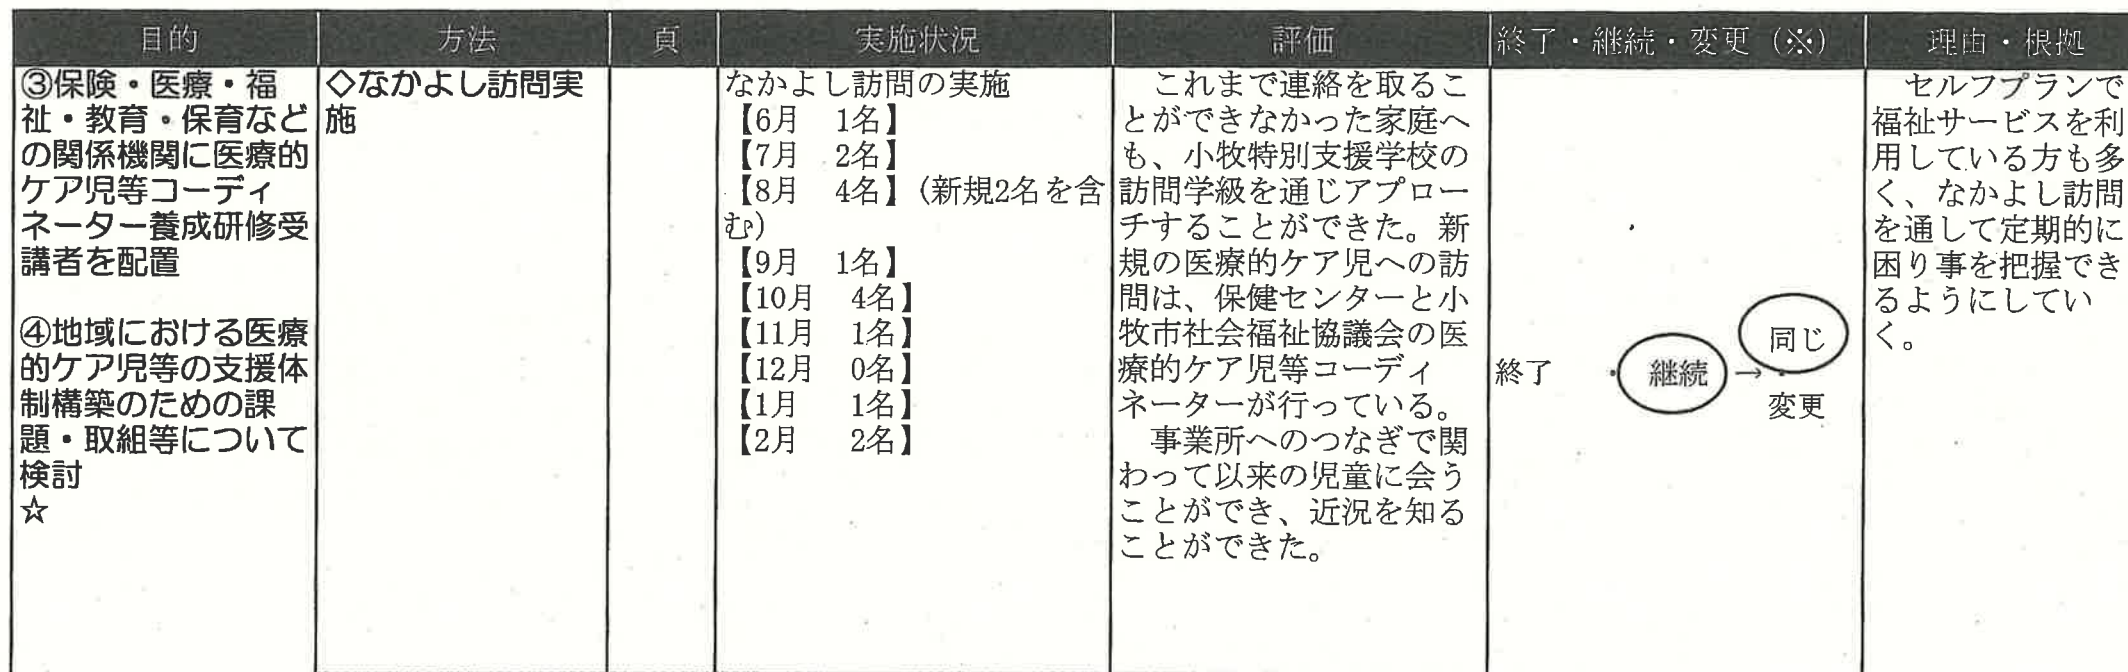 目的 方法 頁 実施状況 評価 終了・継続・変更（※） 理由・根拠
③保険・医療・福
祉・教育・保育など
の関係機関に医療的
ケア児等コーディ
ネーター養成研修受
講者を配置
④地域における医療
的ケア児等の支援体
制構築のための課
題・取組等について
検討
☆
◇なかよし訪問実
施
なかよし訪問の実施
【6月　1名】
【7月　2名】
【8月　4名】（新規2名を含
む）
【9月　1名】
【10月　4名】
【11月　1名】
【12月　0名】
【1月　1名】
【2月　2名】
これまで連絡を取るこ
とができなかった家庭へ
も、小牧特別支援学校の
訪問学級を通じアプロー
チすることができた。新
規の医療的ケア児への訪
問は、保健センターと小
牧市社会福祉協議会の医
療的ケア児等コーディ
ネーターが行っている。
事業所へのつなぎで関
わって以来の児童に会う
ことができ、近況を知る
ことができた。
終了　・　継続　→　同じ
・
変更
セルフプランで
福祉サービスを利
用している方も多
く、なかよし訪問
を通して定期的に
困り事を把握でき
るようにしてい
く。